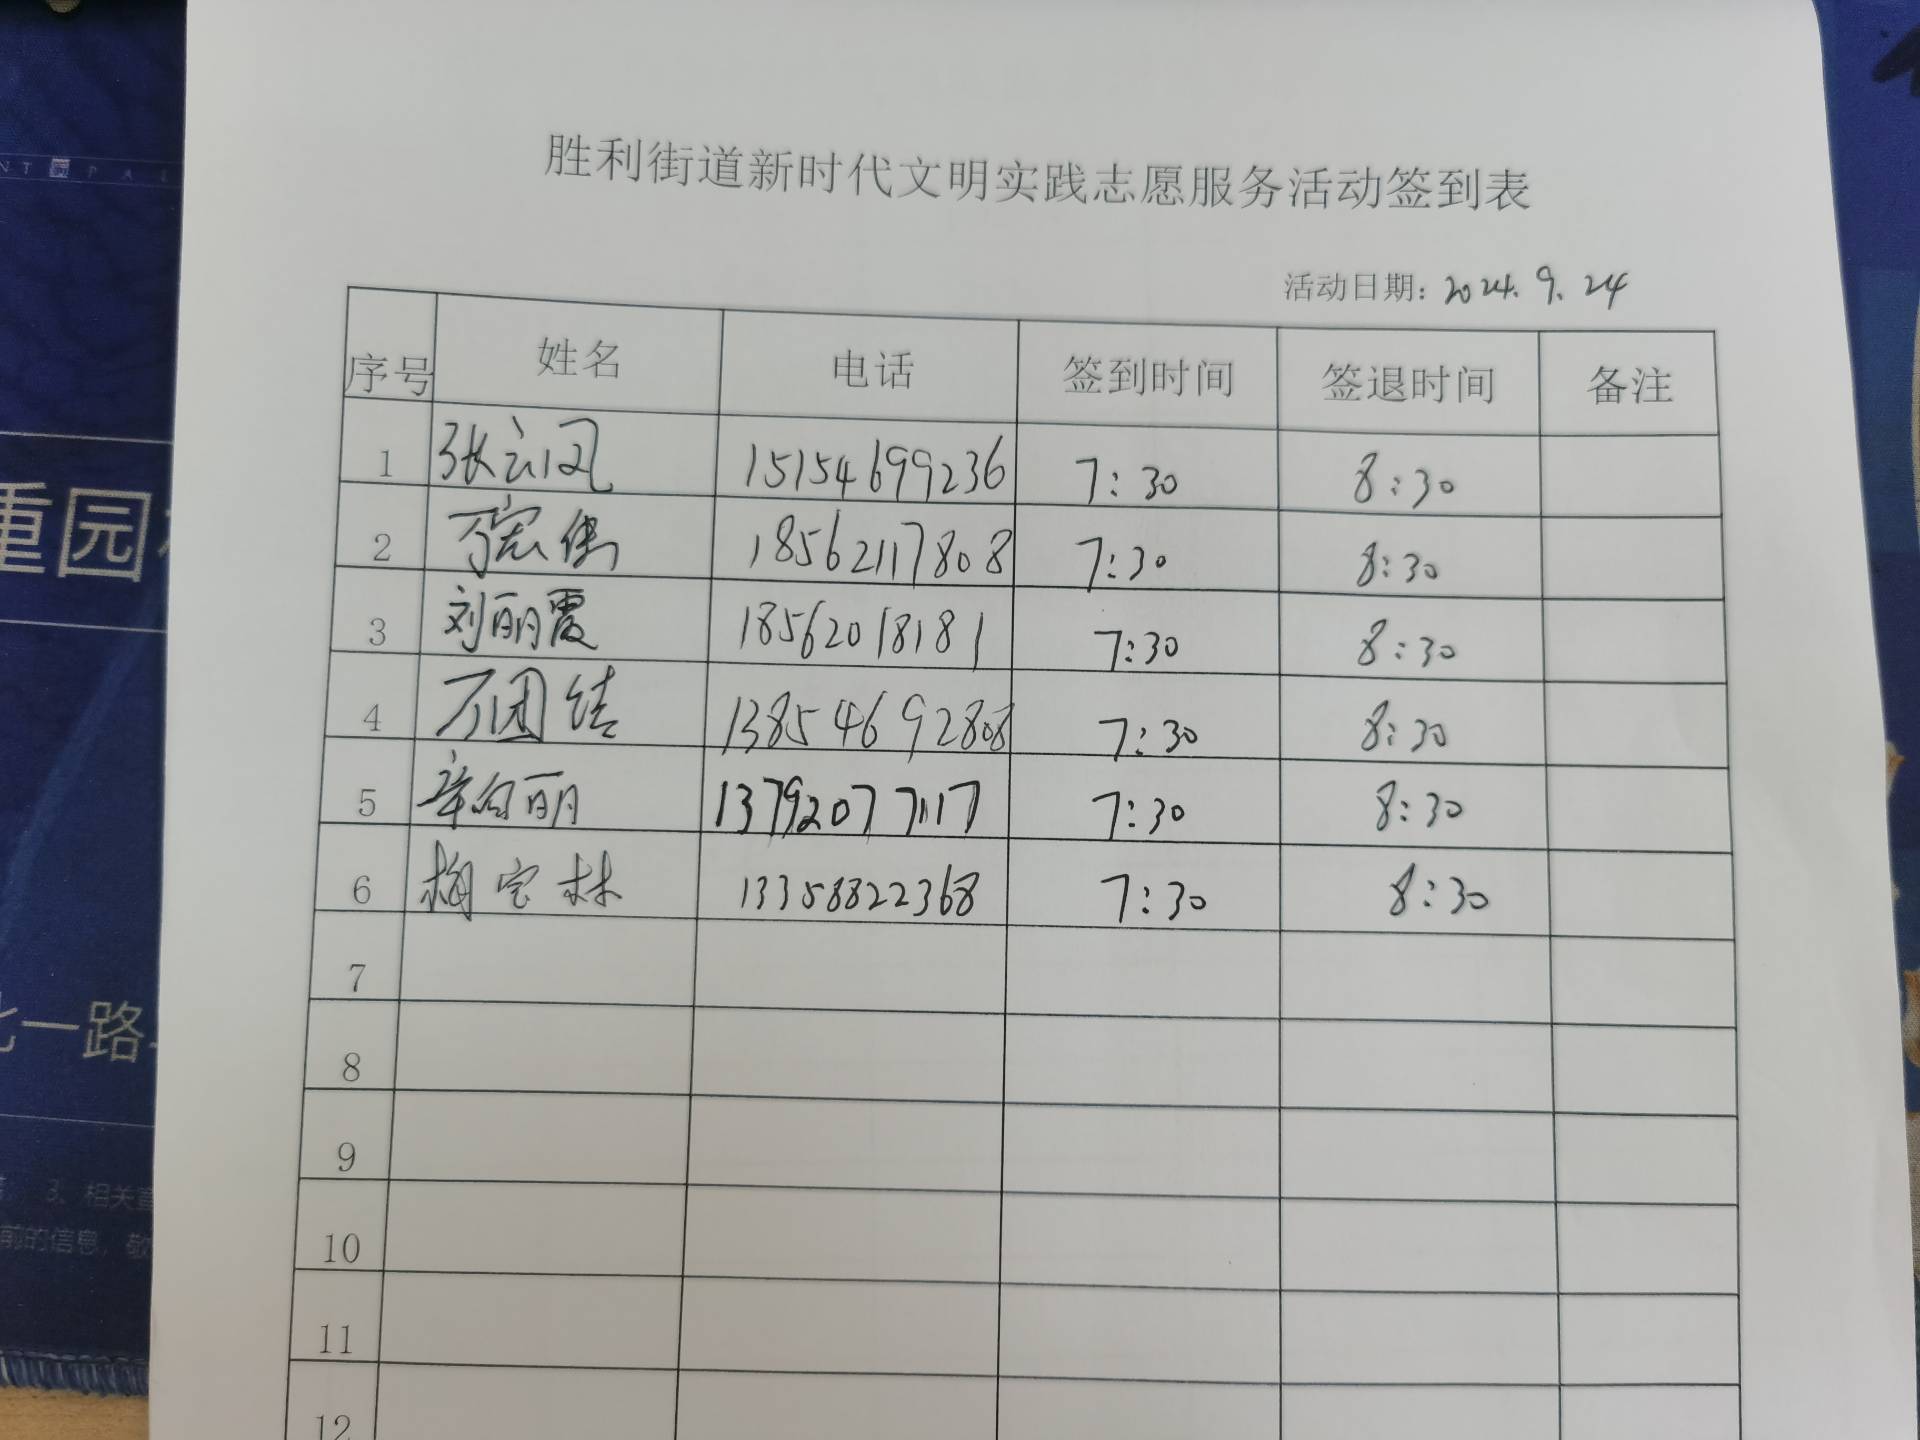 胜利街道新时代文明实践志愿服务活动签到表
活动日期: 2024.9.24
序号 姓名 电话 签到时间 签退时间 备注
1 张云凤 15154699236 7:30 8:30
2 18562117808 7:30 8:30
3 刘丽霞 18562018181 7:30 8:30
4 万团结 13854692808 7:30 8:30
5 辛向丽 13792077117 7:30 8:30
6 梅宝林 13358822368 7:30 8:30
7
8
9
10
11
12
NT PAL
重园
一路
3、相关
前的信息，敬